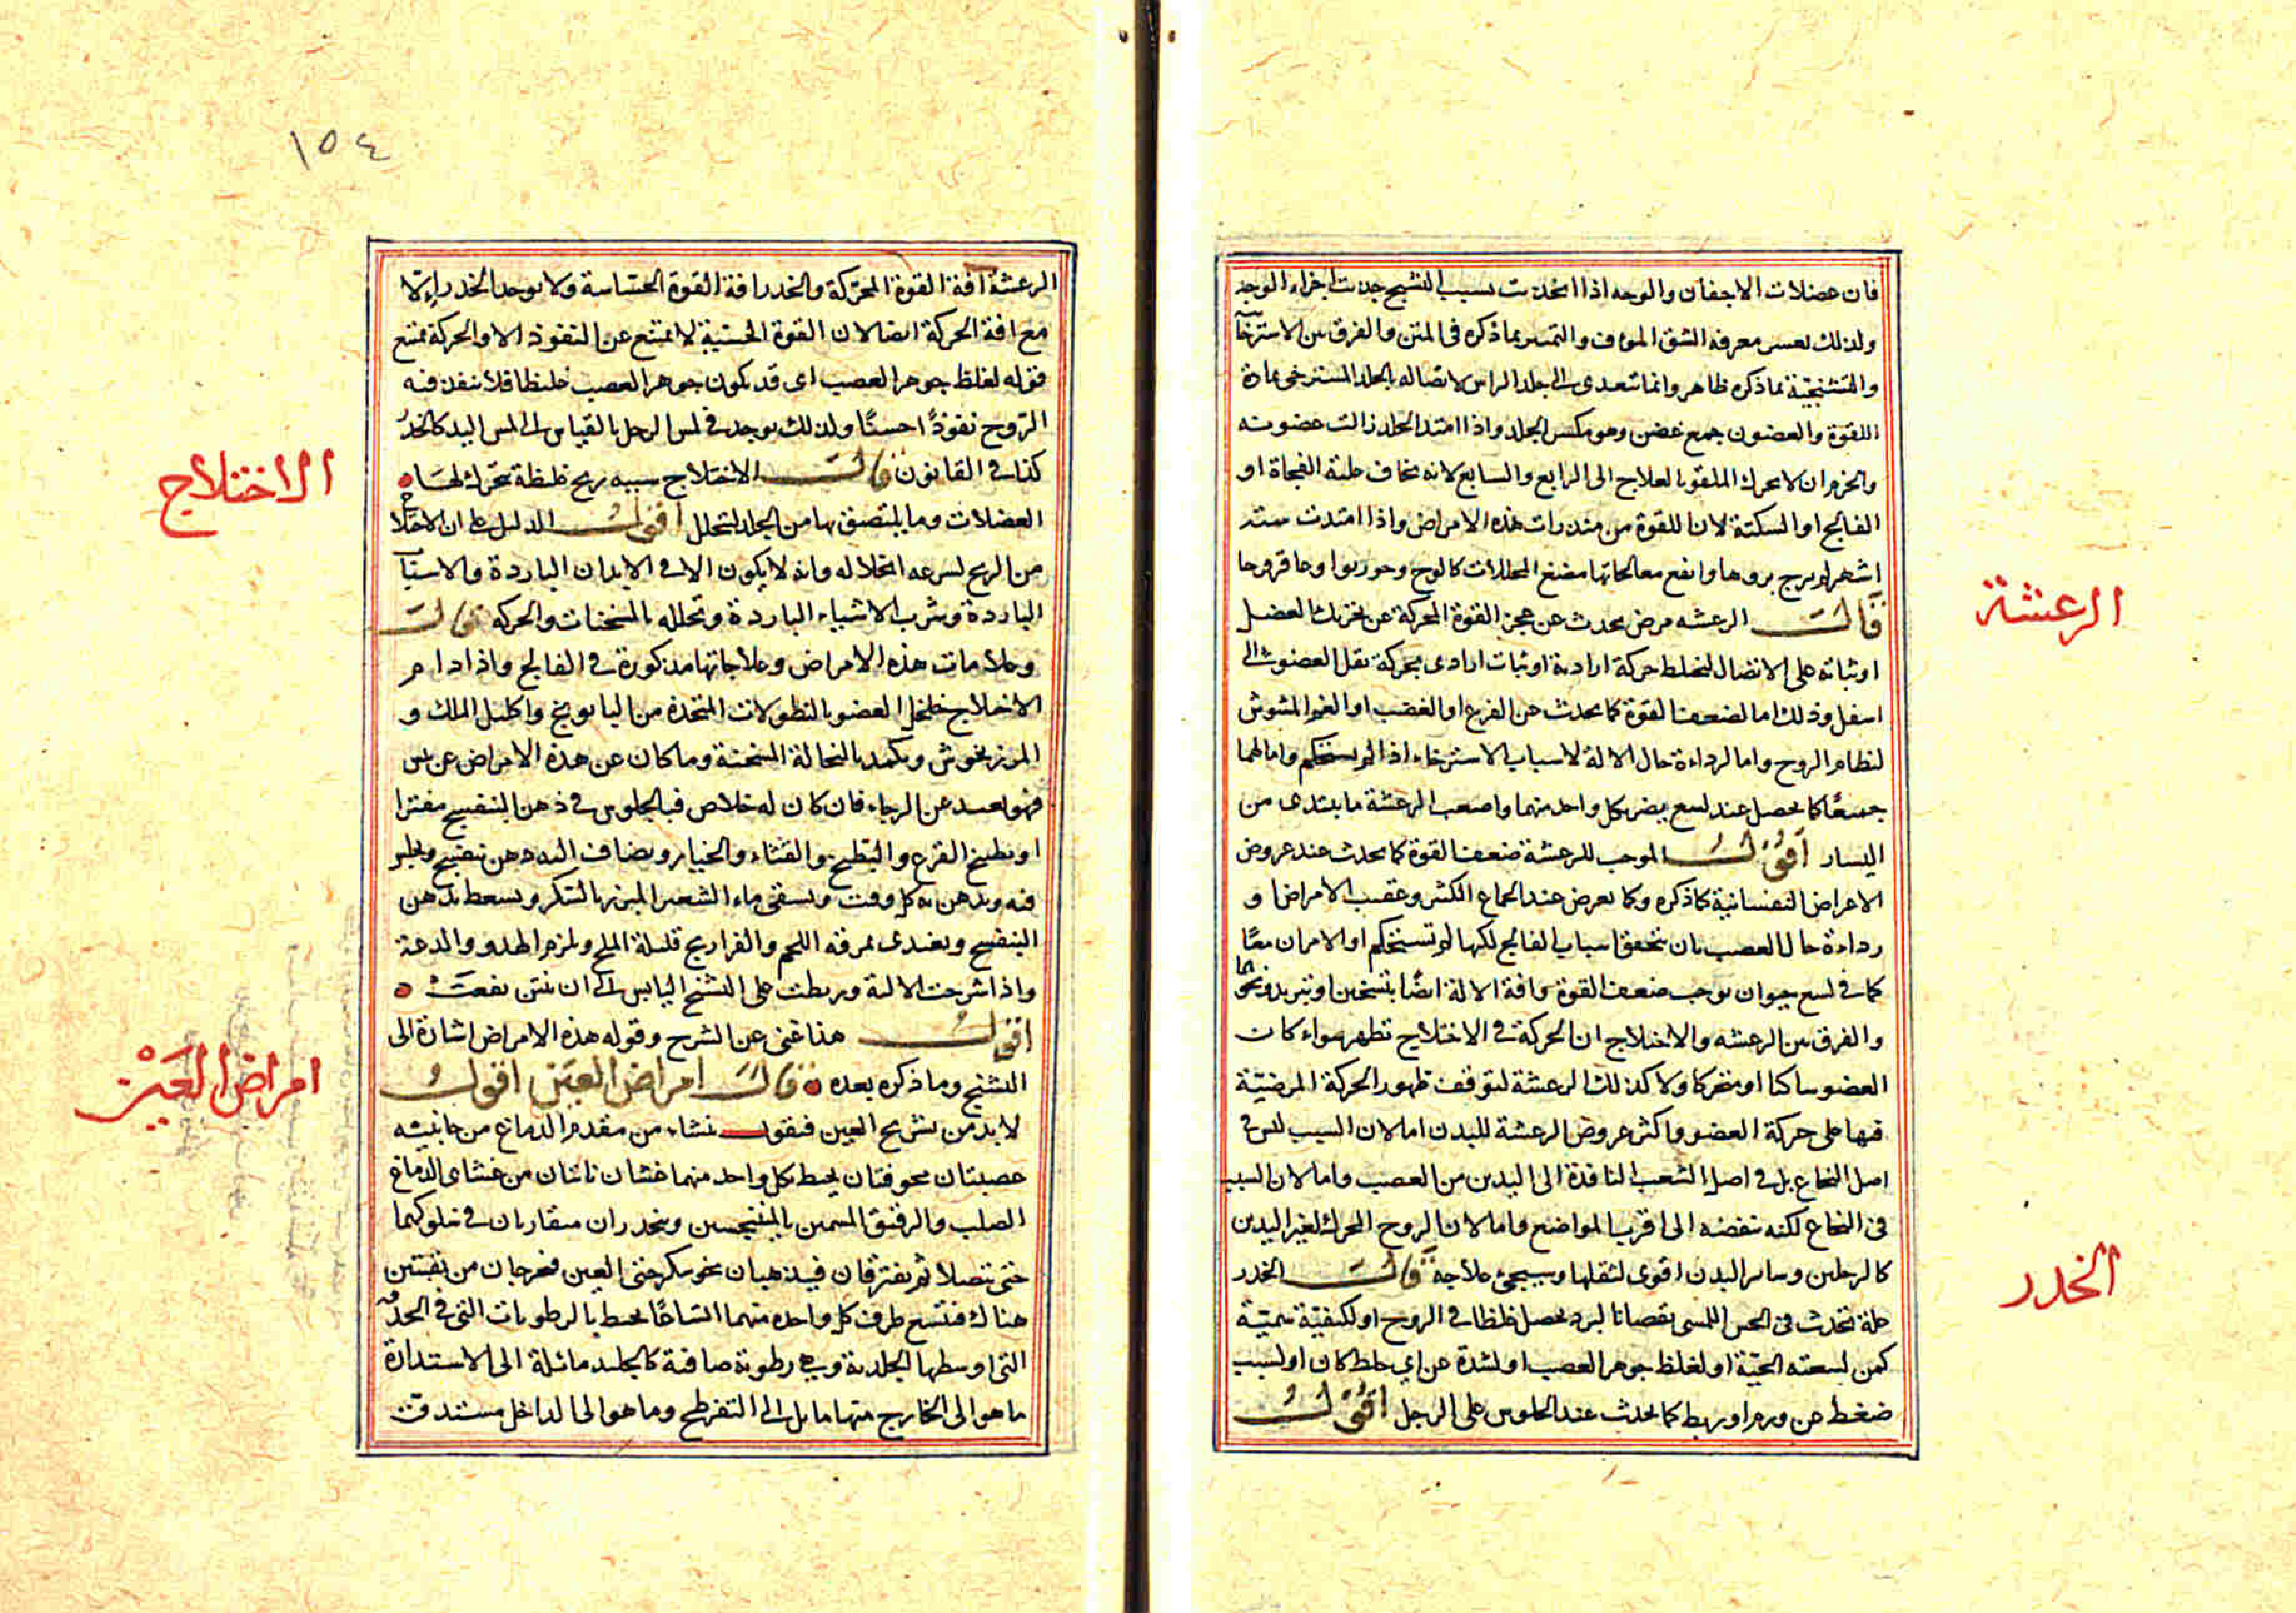 فان عضلات الاجفان والوجه اذا انجذبت بسبب التشنج جذبت اجزاء الوجه
ولذلك يعسر معرفة الشق الموف والتمييز بما ذكره في المتن والفرق بين الاسترخائية
والتشنجية بما ذكره ظاهر وانما تتعدى الى جلد الراس لاتصاله بالجلد المسترخي مادة
اللقوة والغضون جمع غضن وهو مكسر الجلد واذا امتد الجلد زالت غضونه
والحزم ان لا يحرك الملقو بالعلاج الى الرابع والسابع لانه يخاف عليه الفجاة او
الفالج او السكتة لان اللقوة من منذرات هذه الامراض واذا امتدت ستة
اشهر لم يرج بروها وانفع معالجاتها مضغ المحللات كالوج وجوزبوا وعاقرقرحا
الرعشة
قال الرعشه مرض يحدث عن عجز القوة المحركة عن تحريك العضل
او ثباته على الاتصال فتختلط حركة ارادية او ثبات ارادي بحركة ثقل العضو الى
اسفل وذلك اما لضعف القوة كما يحدث من الفزع او الغضب او الغم المشوش
لنظام الروح واما لرداءة حال الالة لاسباب الاسترخاء اذا لم يستحكم واما لهما
جميعا كما يحصل عند لسع يضر بكل واحد منهما واصعب الرعشة ما يبتدى من
اليسار اقول الموجب للرعشة ضعف القوة كما يحدث عند عروض
الاعراض النفسانية كما ذكره وكما يعرض عند الجماع الكثير وعقيب الامراض و
رداءة حال العصب بان تتحقق اسباب الفالج لكنها لم تستحكم او الامران معا
كما في لسع حيوان يوجب ضعف القوة وافة الالة ايضا بتسخين او تبريد ونحوها
والفرق بين الرعشه والاختلاج ان الحركة في الاختلاج تظهر سواء كان
العضو ساكنا او متحركا ولا كذلك الرعشة لتوقف ظهور الحركة المرضية
فيها على حركة العضو واكثر عروض الرعشة لليدين اما لان السبب ليس في
اصل النخاع بل في اصل الشعب النافذة الى اليدين من العصب واما لان السبب
في النخاع لكنه تنفضه الى اقرب المواضع واما لان الروح المحرك لغير اليدين
الخدر
كالرجلين وساير البدن اقوى لثقلها وسيجئ علاجه قال الخدر
علة تحدث في الحس اللمسي نقصانا لبرد يحصل غلظا في الروح او لكيفية سمية
كمن لسعته الحية او لغلظ جوهر العصب او لسدة من اي خلط كان او لسبب
ضغط من ورم او ربط كما يحدث عند الجلوس على الرجل اقول
١٥٤
الرعشة افة القوة المحركة والخدر افة القوة الحساسة ولا يوجد الخدر الا
مع افة الحركة ايضا لان القوة الحسية لا تمتنع عن النفوذ الا والحركة تمتنع
قوله لغلظ جوهر العصب اى قد يكون جوهر العصب غليظا فلا تنفذ فيه
الروح نفوذا حسنا ولذلك يوجد في لمس الرجل بالقياس الى لمس اليد كالخدر
الاختلاج
كذا في القانون قال الاختلاج سببه ريح غليظة تتحرك لها
العضلات وما يلتصق بها من الجلد لتحلل اقول الدليل على ان الاختلاج
من الريح لسرعه انحلاله وانه لا يكون الا في الابدان الباردة والاسنان
الباردة وشرب الاشياء الباردة وتحلله بالمسخنات والحركة قال
وعلامات هذه الامراض وعلاجاتها مذكورة في الفالج واذا دام
الاختلاج خلخل العضو بالنطولات المتخذة من البابونج واكليل الملك و
المرزنجوش ويكمد بالنخالة المسخنة وما كان عن هذه الامراض عن يبس
فهو بعيد عن الرجاء فان كان له خلاص فبالجلوس في دهن البنفسج مفترا
او بطيخ القرع والبطيخ والقثاء والخيار ويضاف اليه دهن بنفسج ويجلس
فيه ويدهن به كل وقت ويسقى ماء الشعير المبزر بالسكر ويسعط بدهن
البنفسج ويغذى بمرقة اللحم والفراريج قليلة الملح ويلزم الهدو والدعة
واذا شرحت الالية وربطت على التشنج اليابس الى ان تنتن نفعت
اقول هذا غني عن الشرح وقوله هذه الامراض اشارة الى
امراض العين
التشنج وما ذكره بعده قال امراض العين اقول
لا بد من تشريح العين فنقول تنشاء من مقدم الدماغ من جانبيه
عصبتان مجوفتان يحيط بكل واحد منهما غشان ناتيان من غشاى الدماغ
الصلب والرقيق المسمين بالمننجسين وينحدران متقاربان في سلوكهما
حتى تتصلا ثم يفترقان فيذهبان نحو مركزى العين فيخرجان من ثقبتين
هناك فتتسع طرف كل واحده منهما اتساعا يحيط بالرطوبات التي في الحدقة
التي اوسطها الجلدية وهي رطوبة صافية كالجليد مائلة الى الاستدارة
ما هو الى الخارج منها مايل الى التفرطح وما هو الى الداخل مستدقة